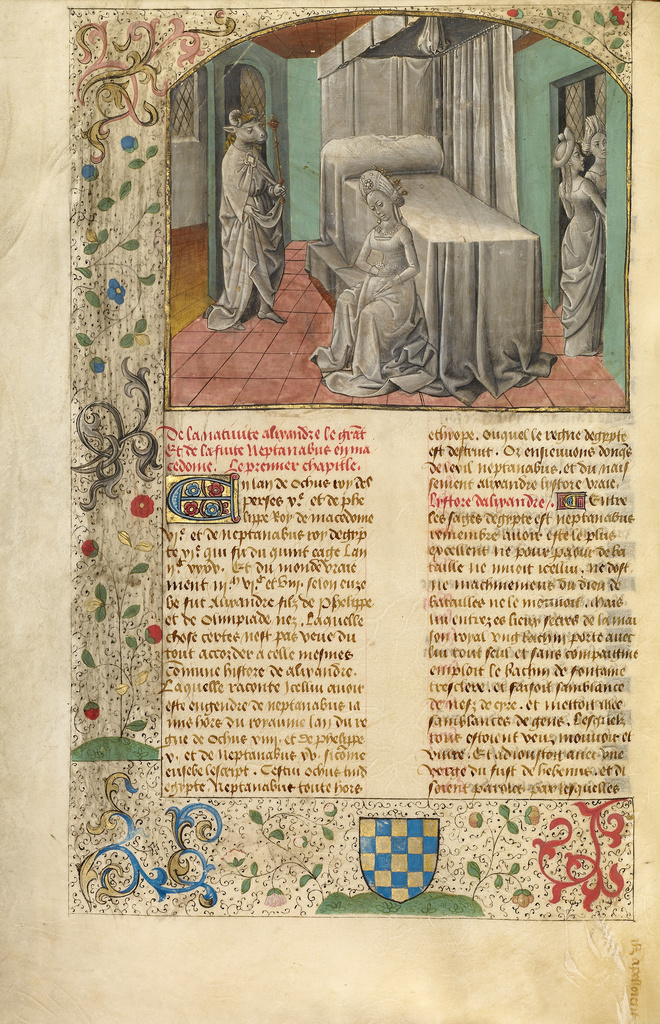 De la natiuite alixandre le grãt
Et de la fuite Neptanabus en ma
cedome. Le premier chapitle.
En lan de Ochus roy des
perses vᵉ. et de phe
lippe Roy de macedome
viᵉ. et de neptanabus roy degyp
te viiᵉ qui fu du quint eage Lan
Et du monde vraie
ment selon euse
be fut Alixandre filz de Phelippe
et de Olimpiade nez. Laquelle
chose certes nest pas veue du
tout accorder a celle mesmes
Comune histore de alixandre.
Laquelle raconte Icellui auoir
este engendre de neptanabus la
me hors du royaume lan du re
gne de Ochus viii. et de phelippe
v. et de Neptanabus xv. sicome
eusebe lescript. Cestui Ochus
egypte. Neptanabus toute hors
ethiope. Ouquel le regne degypte
est destruit. Or ensieuuons donqs
de lexil neptanabus. et du nais
sement alixandre lystore vraie.
Lystore dalixandre. Entre
les saiges degypte est neptanabus
remembre auoir este le plus
excellent ne pour paour de ba
taille ne nuioit icellui. ne dost
ne machinement du dieu de
batailles ne le mouuoit. Mais
lui entrez es lieux secrez de la mai
son royal vng Bachin porte auec
lui tout seul et sans compaignie
emploit le Bachin de fontaine
tresclere. et faisoit samblance
de nefz de cyre. et mettoit
samblances de gens. Lesquelz
tous estoient veuz mouuoir et
viure. Et adioustoit auec vne
verge du fust de hebenus. et di
soient paroles par lesquelles